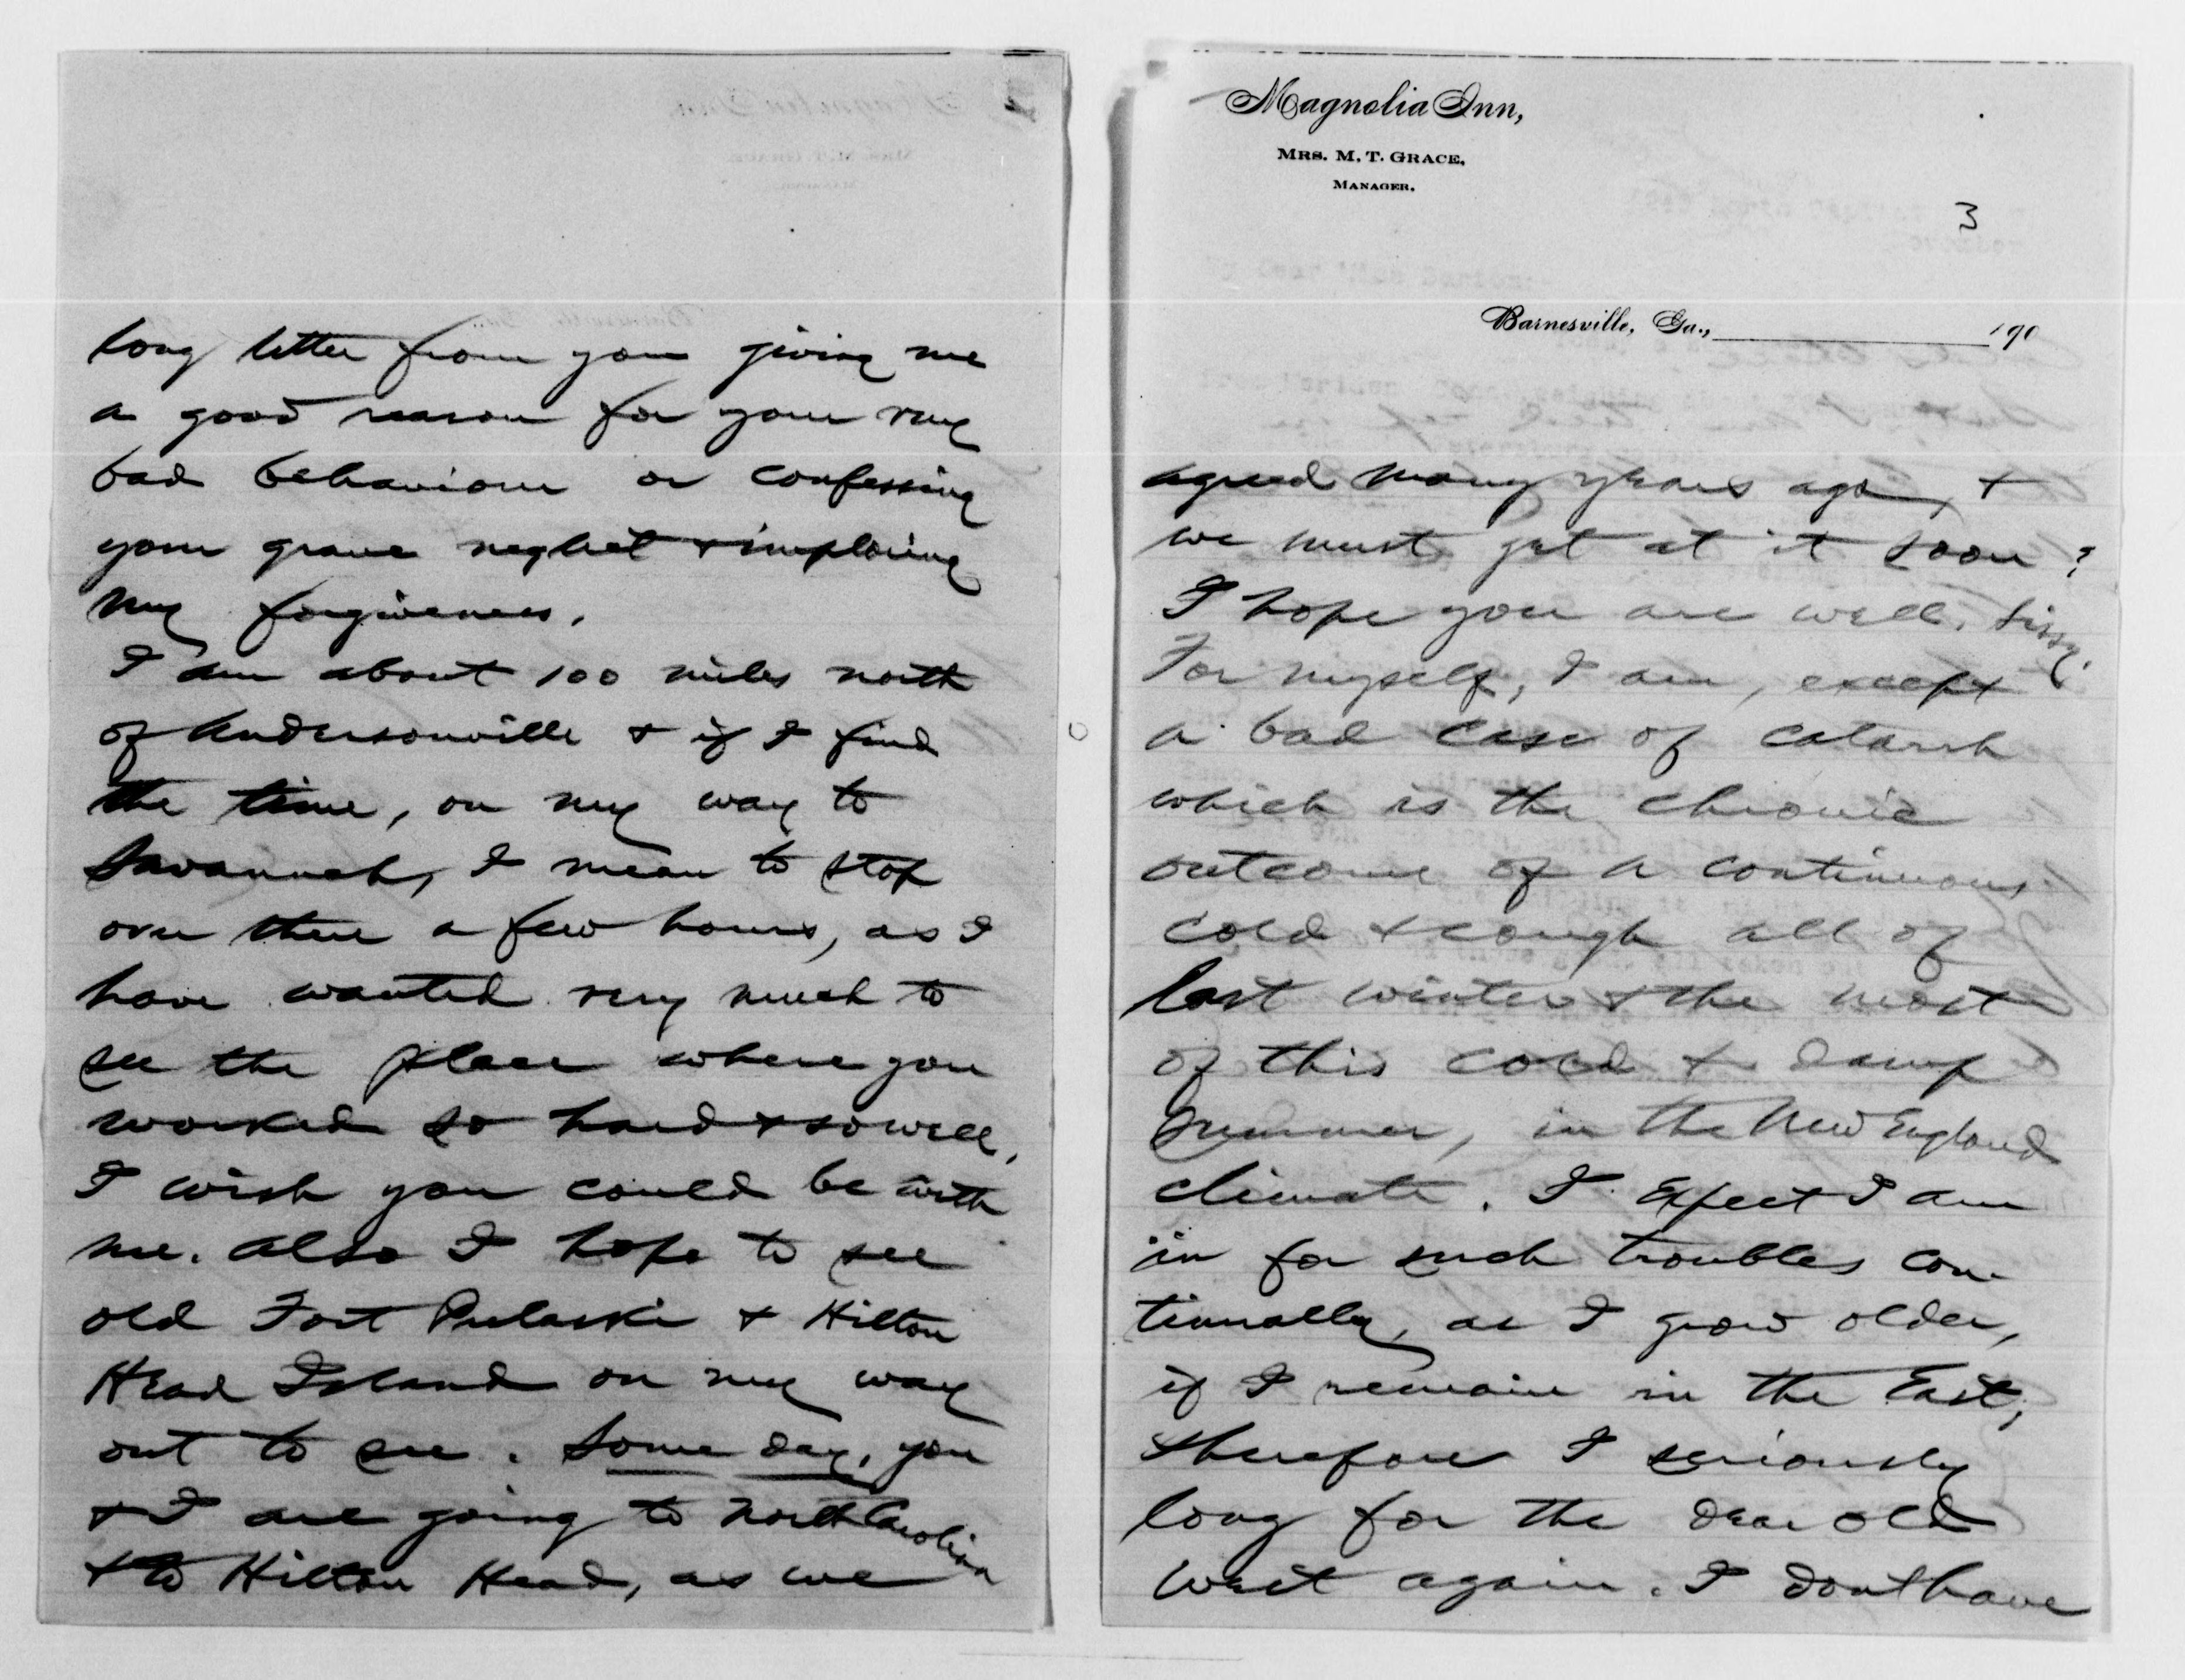 2
long letter from you giving me
a good reason for your very
bad behaviour or confessing
your grave neglect & imploring
my forgiveness.
I am about 100 miles north
of Andersonville & if I find
the time, on my way to
Savannah, I mean to stop
over there a few hours, as I
have wanted very much to
see the place where you
worked so hard & so well,
I wish you could be with
me. Also I hope to see
old Fort Pulaski & Hilton
Head Island on my way
out to sea. Some day, you
& I are going to North Carolina
& to Hilton Head, as we
Magnolia Inn,
MRS. M. T. GRACE,
MANAGER.
3
Barnesville, Ga., 190
agreed many years ago, &
we must get at it soon?
I hope you are well, Sissy.
For myself, I am, except
a bad case of catarrh
which is the chronic
outcome of a continuous
cold & cough all of
last winter & the most
of this cold & damp
summer, in the New England
climate. I Expect I am
in for such troubles con-
tinually, as I grow older,
if I remain in the East;
therefore I seriously
long for the dear old
West again. I dont have